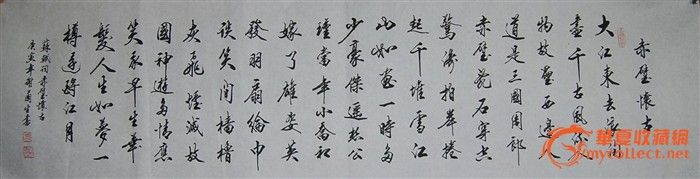 赤壁懷古
大江東去浪淘
盡千古風流人
物故壘西邊人
道是三國周郎
赤壁亂石穿空
驚濤拍岸捲
起千堆雪江
山如畫一時多
少豪傑遙想公
瑾當年小喬初
嫁了雄姿英
發羽扇綸巾
談笑間檣櫓
灰飛煙滅故
國神遊多情應
笑我早生華
髮人生如夢一
樽還酹江月
蘇軾詞赤壁懷古
庚寅年
書
华夏收藏网
mycollect.net